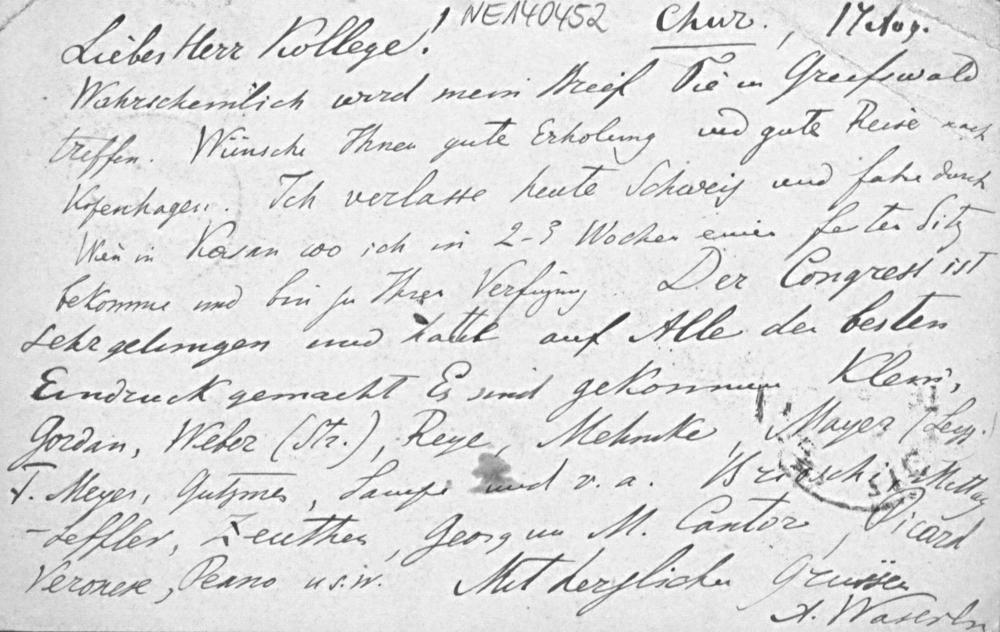 NE140452
Chur., 17 Aug.
Lieber Herr Kollege!
Wahrscheinlich wird mein Brief Sie in Greifswald
treffen. Wünsche Ihnen gute Erholung und gute Reise nach
Kopenhagen. Ich verlasse heute Schweiz und fahre durch
Wien in Kasan wo ich in 2-3 Wochen einen festen Sitz
bekomme und bin zu Ihrer Verfügung. Der Congress ist
sehr gelungen und hatte auf Alle den besten
Eindruck gemacht Es sind gekommen Klein,
Gordan, Weber (Str.), Reye, Mehmke, Mayer (Leip.)
F. Meyer, Gutzmer, Lampe und v. a. Mittag
-Leffler, Zeuthen, Georg und M. Cantor, Picard
Veronese, Peano u.s.w. Mit herzlichen Grüssen
A. Wassiliew